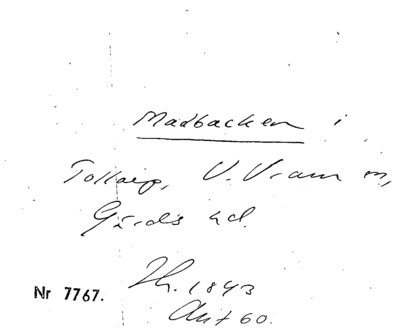 Madbacken i
Tollarp, V. Vram m,
Gärds hd.
Th. 1843
Ant 60.
Nr 7767.